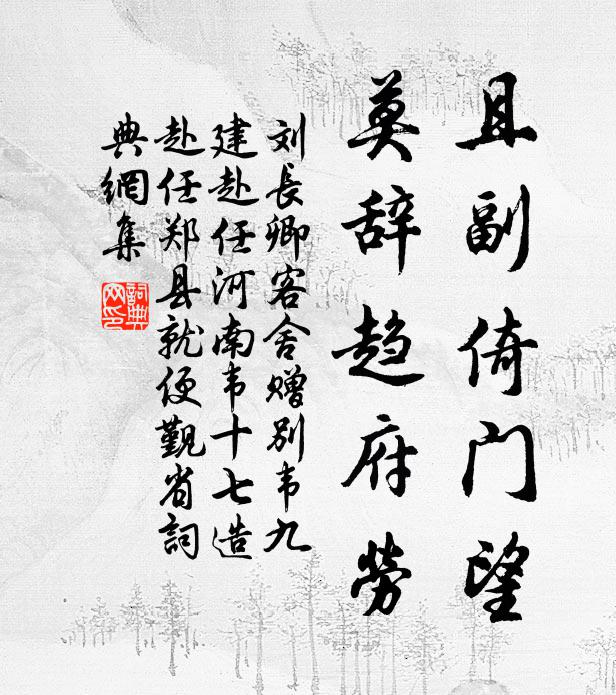 且副倚门望
莫辞趋府劳
刘長卿客舍赠别韦九
建赴任河南韦十七造
赴任郑县就便觐省詞
典網集
詞典
网印